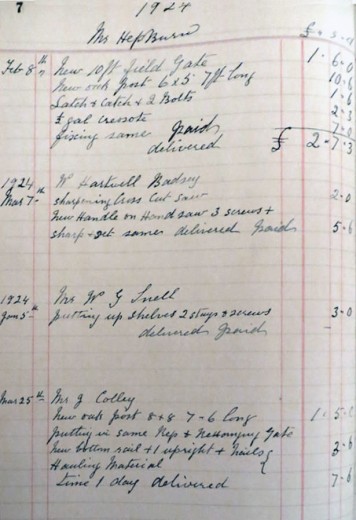 7 1924
Mr Hepburn £ - s - d
Feb 8th New 10ft field Gate 1 - 6 - 0
New oak Post 6 x 5 7ft long 10 - 6
Latch & Catch & 2 Bolts 1 - 6
gal creosote 2 - 3
fixing same Paid 7 - 0
delivered £ 2 - 7 - 3
1924 Wm Hartwell Badsey
Mar 7th sharpening Cross Cut saw 2 - 0
New Handle on Hand saw 3 screws &
sharp & set same delivered Paid 5 - 6
1924 Mrs Wm G Snell
Jan 5th putting up shelves 2 stays & screws 3 - 0
delivered Paid
Mar 25th Mr J Colley
New oak post 8 x 8 7 - 6 long 1 - 5 -
putting in same & Gate
New bottom rail & 1 upright & Nails 3 - 6
Hauling Material
Time 1 day delivered 7 - 6